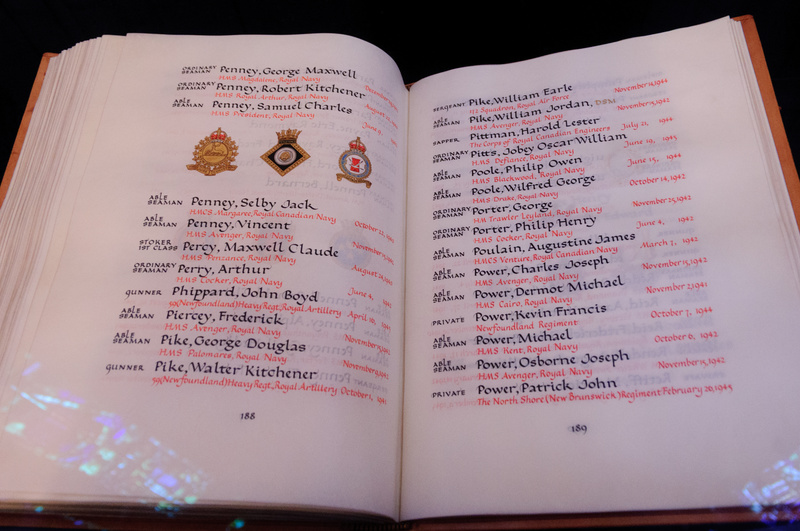 ORDINARY SEAMAN Penney, George Maxwell
H.M.S. Magdalene, Royal Navy December
ORDINARY SEAMAN Penney, Robert Kitchener
H.M.S. Royal Arthur, Royal Navy August
ABLE SEAMAN Penney, Samuel Charles
H.M.S. President, Royal Navy June 9,
ABLE SEAMAN Penney, Selby Jack
H.M.C.S. Margaree, Royal Canadian Navy October 22,
ABLE SEAMAN Penney, Vincent
H.M.S. Avenger, Royal Navy November 15,
STOKER 1ST CLASS Percy, Maxwell Claude
H.M.S. Penzance, Royal Navy August 24,
ORDINARY SEAMAN Perry, Arthur
H.M.S. Cocker, Royal Navy June 4,
GUNNER Phippard, John Boyd
59(Newfoundland)Heavy Regt, Royal Artillery April
ABLE SEAMAN Piercey, Frederick
H.M.S. Avenger, Royal Navy November 15, 1942
ABLE SEAMAN Pike, George Douglas
H.M.S. Palomares, Royal Navy November 1942
GUNNER Pike, Walter Kitchener
59(Newfoundland)Heavy Regt, Royal Artillery October 1,
188
SERGEANT Pike, William Earle
Squadron, Royal Air Force November 1944
ABLE SEAMAN Pike, William Jordan, DSM
H.M.S. Avenger, Royal Navy November 15, 1942
SAPPER Pittman, Harold Lester
The Corps of Royal Canadian Engineers July 21, 1944
ORDINARY SEAMAN Pitts, Jobey Oscar William
H.M.S. Defiance, Royal Navy June 19,
ABLE SEAMAN Poole, Philip Owen
H.M.S. Blackwood, Royal Navy June 15, 1944
ABLE SEAMAN Poole, Wilfred George
H.M.S. Drake, Royal Navy October 14, 1942
ORDINARY SEAMAN Porter, George
H.M Trawler Leyland, Royal Navy November 25, 1942
ORDINARY SEAMAN Porter, Philip Henry
H.M.S. Cocker, Royal Navy June 4, 1942
ABLE SEAMAN Poulain, Augustine James
H.M.C.S Venture, Royal Canadian Navy March 5, 1942
ABLE SEAMAN Power, Charles Joseph
H.M.S. Avenger, Royal Navy November 15, 1942
ABLE SEAMAN Power, Dermot Michael
H.M.S. Cairo, Royal Navy November 27, 1941
PRIVATE Power, Kevin Francis
Newfoundland Regiment October 7, 1944
ABLE SEAMAN Power, Michael
H.M.S. Kent, Royal Navy October 6, 1942
ABLE SEAMAN Power, Osborne Joseph
H.M.S. Avenger, Royal Navy November 15, 1942
PRIVATE Power, Patrick John
The North Shore (New Brunswick) Regiment February 26, 1945
189